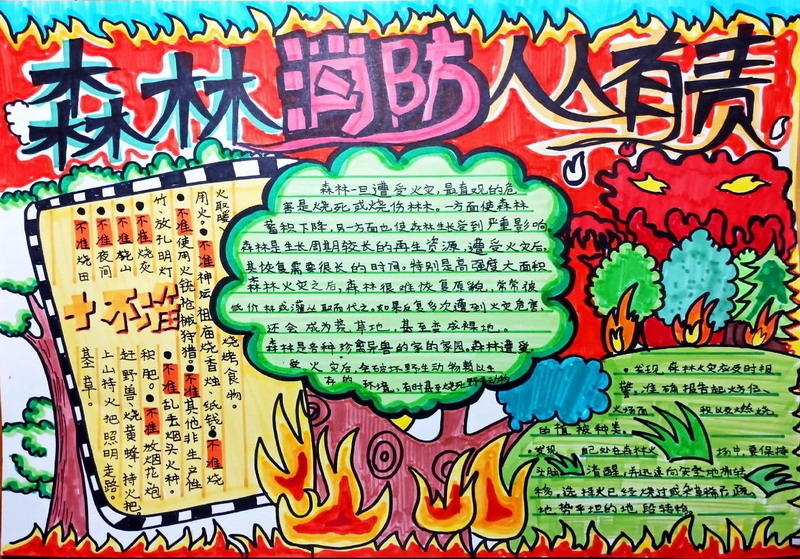 森林消防人人有责
十不准
火取暖、
烧烤食物。
用火。●不准神坛祖庙烧香烛、纸钱。●不准烧
●不准使用火铳枪械狩猎。●不准其他非生产性
竹、放孔明灯
●不准乱丢烟头火种。
●不准烧灰
积肥。●不准放烟花炮
●不准烧山
赶野兽、烧黄蜂、持火把
●不准夜间
上山持火把照明走路。
●不准烧田
基草。
森林一旦遭受火灾,最直观的危
害是烧死或烧伤林木。一方面使森林
蓄积下降,另一方面也使森林生长受到严重影响
森林是生长周期较长的再生资源,遭受火灾后,
其恢复需要很长的时间。特别是高强度大面积
森林火灾之后,森林很难恢复原貌,常常被
低价林或灌丛取而代之。如果反复多次遭到火灾危害,
还会成为荒草地,甚至变成裸地。
森林是各种珍禽异兽的家的家园。森林遭受
火灾后,会破坏野生动物赖以生
存的环境。有时甚至烧死野生动物
·发现森林火灾应及时报
警,准确报告起火方位、
火场面 积以及燃烧
的植被种类。
·发现 自己处在森林火 场中,要保持
头脑 清醒,并迅速向安全地带转
移,选择火已经烧过或杂草稀疏、
地势平坦的地段转移。